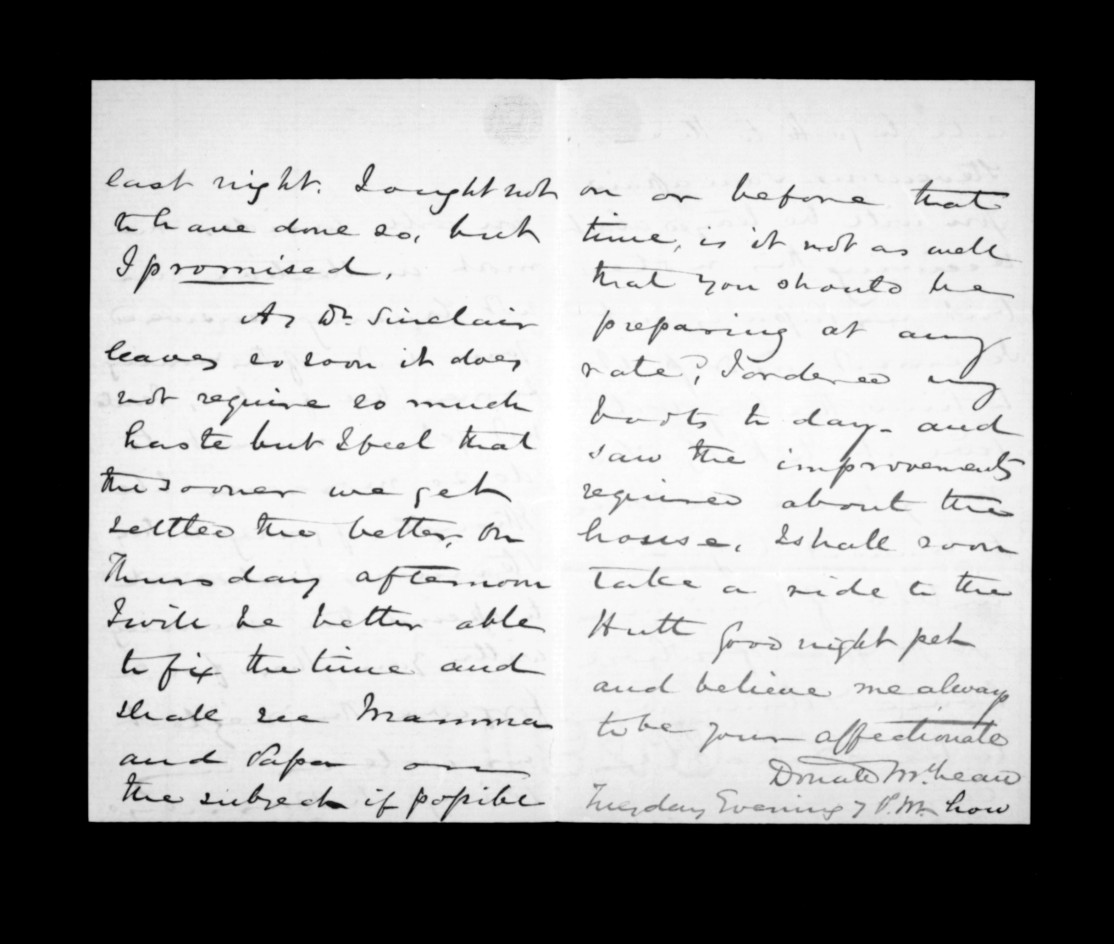 last night. I ought not
to have done so, but
I promised.
As Dr. Sinclair
leaves so soon it does
not require so much
haste but I feel that
the sooner we get
settled the better, On
Thursday afternoon
I will be better able
to fix the time and
shall see Mamma
and Papa on
the subject if possible
on or before that
time, is it not as well
that you should be
preparing at any
rate? I ordered my
boots to day - and
saw the improvements
required about the
house, I shall soon
take a ride to the
Hutt Good night pet
and believe me always
to be your affectionate
Donald McLean
Tuesday Evening 7 P.M. how